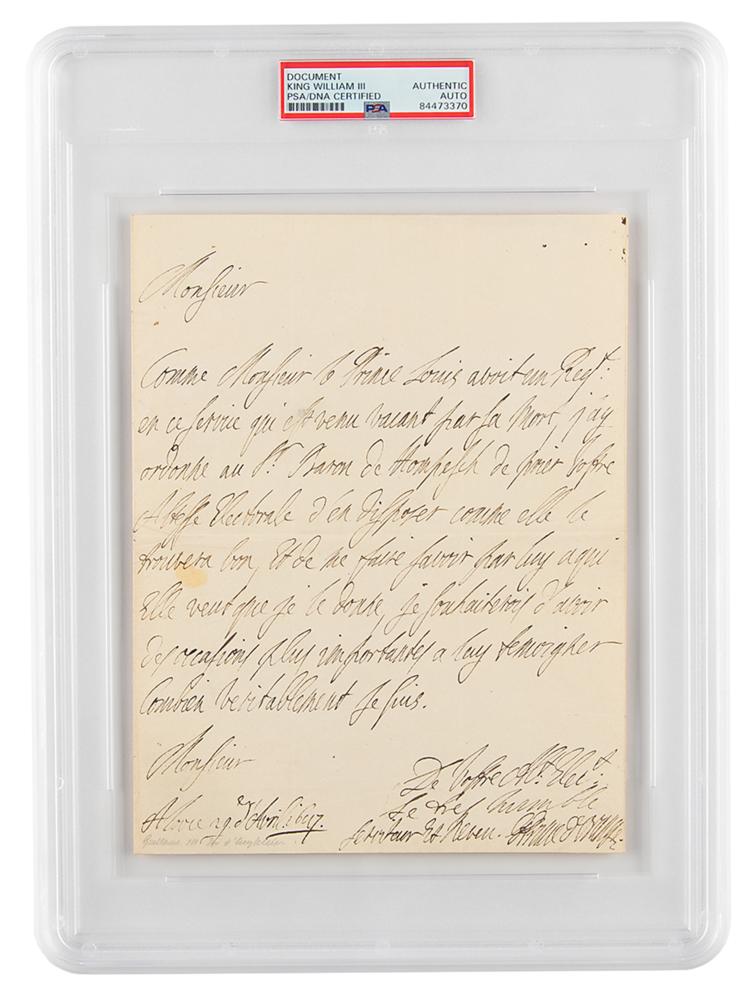 DOCUMENT
KING WILLIAM III
PSA/DNA CERTIFIED
AUTHENTIC
AUTO
84473370
PSA
Monsieur
Comme Monsieur le Prince Louis avoit un Regt.
en ce service qui est venu vacant par sa Mort, j'ay
ordonne au Sr. Baron de Hompesch de prier Vostre
Altesse Electorale d'en disposer comme elle le
trouvera bon, Et de me faire savoir par luy a qui
Elle veut que je le donne, je souhaiterois d'avoir
des occasions plus importantes a luy temoigner
Combien veritablement je suis.
Monsieur
De Vostre Alt. Elect.
Le tres humble
serviteur Et Neveu. Prince d'Orange
d'Avril